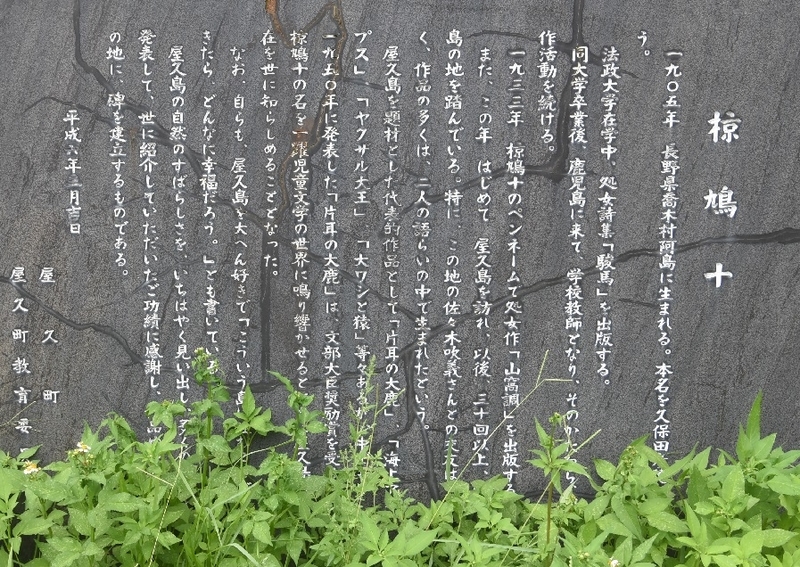 椋鳩十
一九〇五年 長野県喬木村阿島に生まれる。本名を久保田
う。
法政大学在学中、処女詩集「駿馬」を出版する。
同大学卒業後、鹿児島に来て、学校教師となり、そのか
作活動を続ける。
一九三三年 椋鳩十のペンネームで処女作「山窩調」を出版する
また、この年 はじめて 屋久島を訪れ、以後、三十回以上、
島の地を踏んでいる。特に、この地の佐々木吹義さんとの交友は
く、作品の多くは、二人の語らいの中で生まれたという。
屋久島を題材とした代表的作品として「片耳の大鹿」、「海
プス」、「ヤクザル大王」、「大ワシと猿」等々あるが
一九五〇年に発表した「片耳の大鹿」は、文部大臣奨励賞を受
椋鳩十の名を一躍児童文学の世界に鳴り響かせると
在を世に知らしめることとなった。
なお、自らも、屋久島を大へん好きで「こういう島
きたら、どんなに幸福だろう。」とも書いている
屋久島の自然のすばらしさを、いちはやく見い出し、多く
発表して、世に紹介していただいたご功績に感謝し、
の地に、碑を建立するものである。
平成六年三月吉日
屋久町
屋久町教育委